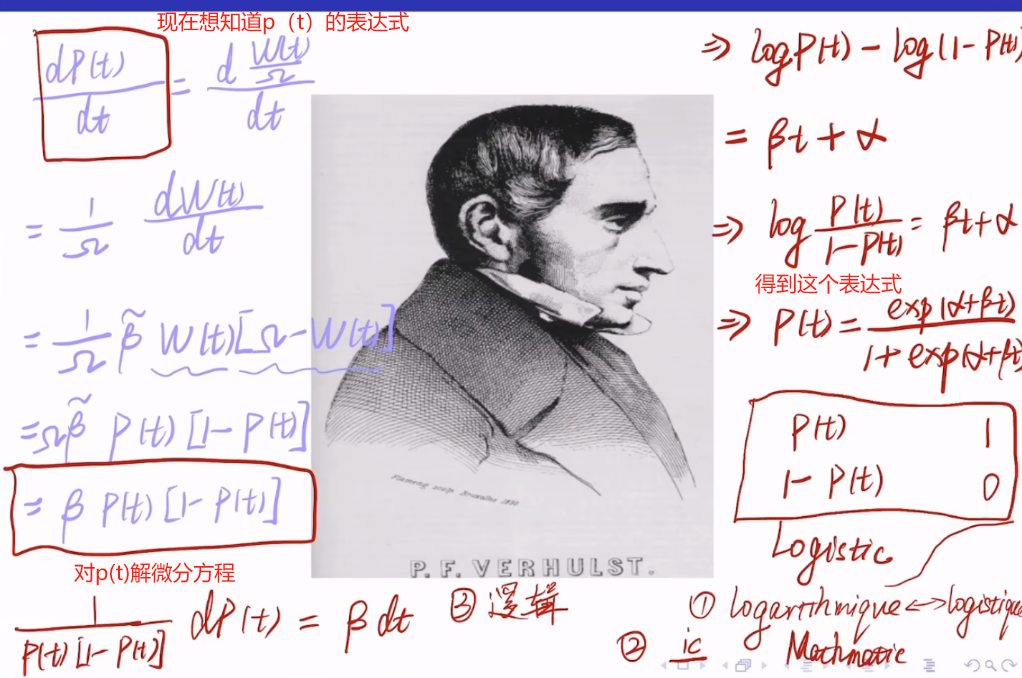 现在想知道p（t）的表达式
dP(t)/dt = d W(t)/Ω / dt
= 1/Ω dW(t)/dt
= 1/Ω β̃ W(t)[Ω-W(t)]
=Ωβ̃ P(t) [1-P(t)]
= β P(t) [1-P(t)]
对p(t)解微分方程
1/P(t)[1-P(t)] dP(t) = β dt
P.F. VERHULST.
⇒ log P(t) - log(1-P(t)
= βt + α
⇒ log P(t)/1-P(t) = βt+α
得到这个表达式
⇒ P(t) = exp(α+βt)/1+exp(α+βt)
P(t) 1
1-P(t) 0
Logistic
① logarithmique ↔ logistique
② ic Mathmatic
③ 逻辑